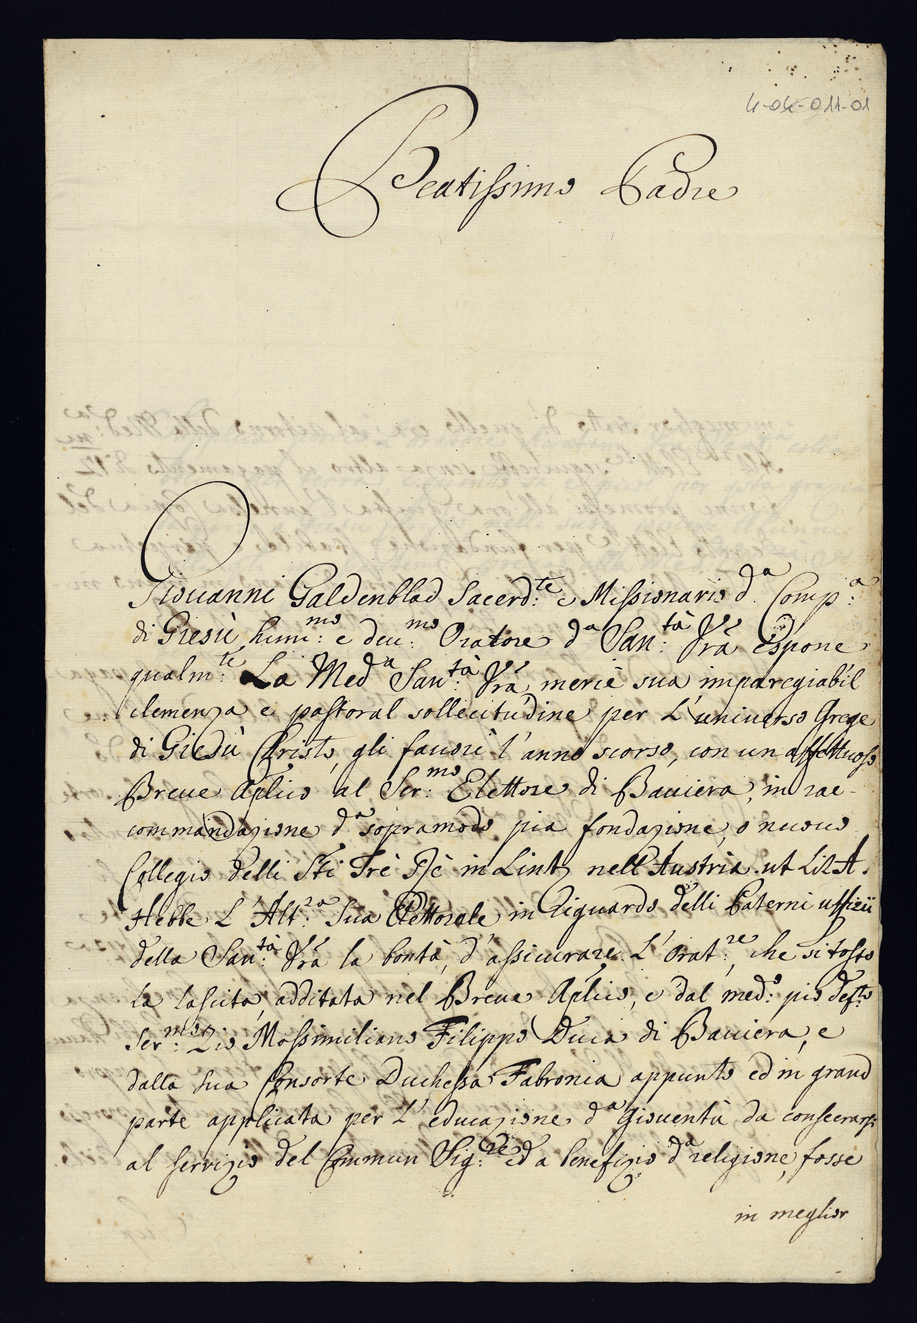 4-04-011-01
Beatissimo Padre
Giovanni Galdenblad Sacerd:te e Missionario d.a Comp:a
di Giesù hum:mo e deu:mo Oratore d.a San:tà Vrã Espone
qualm:te La Med.a San:tà Vrã, mercè sua imparegiabil
clemenza e pastoral sollecitudine per L'universo Grege
di Giesù Christo, gli favorì l'anno scorso, con un affettuoso
Breve Aplico al Ser:mo Elettore di Baviera, in rac-
commandazione d.a sopramodo pia fondazione, o nuovo
Collegio delli Sti Trè Rè in Lintz nell'Austria. ut Lit. A.
Hebbe L'Alt:za Sua Elettorale in riguardo delli Paterni uffizii
della San:tà Vrã la bontà, d'assicurare L'Orat:re, che si tosto
la lascita, additata nel Breve Aplico, e dal med:o pio def:to
Ser:mo Zio Massimiliano Filippo Duca di Baviera, e
dalla sua Consorte Duchessa Fabronia appunto ed in grand
parte applicata per L'educazione d.a Gioventù da consecrarsi
al servizio del Commun Sig:re ed a benefizio d.a religione, fosse
in meglior